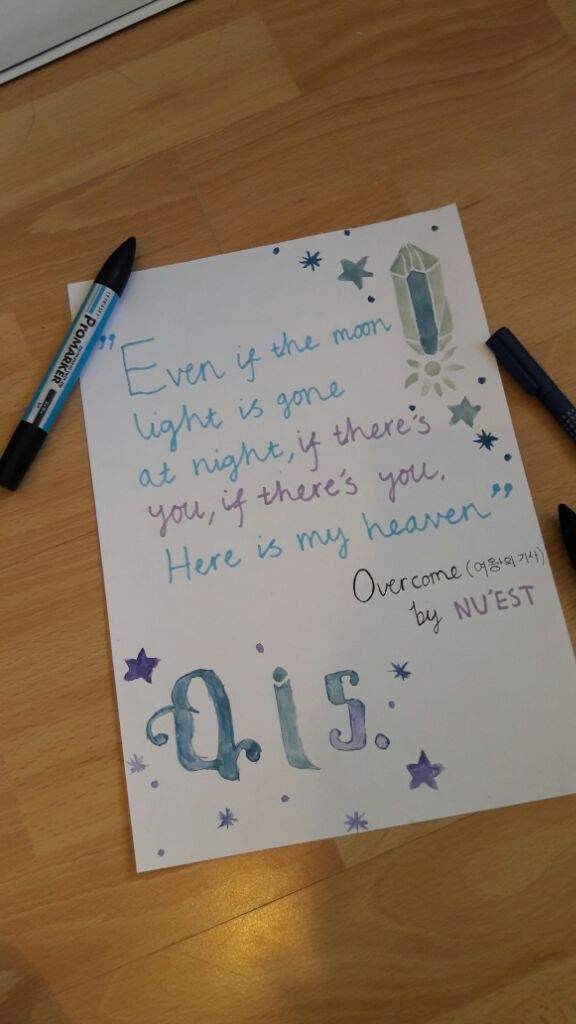 "Even if the moon
light is gone
at night, if there's
you, if there's you.
Here is my heaven"
Overcome (여왕의 기사)
by NU'EST
Q is.
PROMARKER